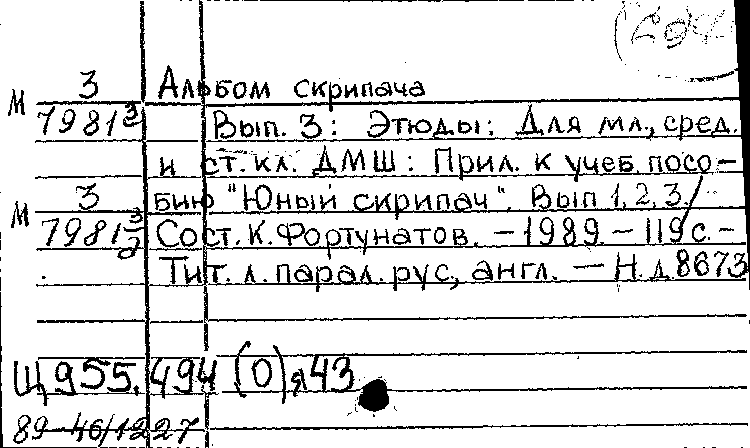 М 3 Альбом скрипача
7981 3 Вып. 3: Этюды: Для мл., сред.
и ст. кл. ДМШ: Прил. к учеб. посо-
М 3 бию "Юный скрипач". Вып 1, 2, 3.
7981 3/2 Сост. К. Фортунатов. - 1989. - 119 с. -
Тит. л. парал. рус., англ. - Н. д. 8673
Щ 955.494 (0) я 43
89-46/1227